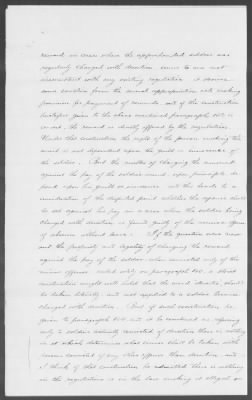 reward in cases where the apprehended soldier was
regularly charged with desertion seems to me not
inconsistent with any existing regulation. It
some variation from the usual appropriation act making
provision for payment of rewards. And if the construction
heretofore given to the above mentioned paragraph 160 is
correct, the reward is directly offered by the regulations.
Under that construction the right of the person making the
arrest is not dependent upon the guilt or innocence
of the soldier. But the matter of charging the amount
against the pay of the soldier must, upon principle, de-
pend upon his guilt or innocence. And this leads to a
consideration of the disputed point whether the expense should
be set against his pay in a case when the soldier being
charged with desertion is found guilty of the minor offence
of absence without leave. If the question were now
out the propriety and legality of charging the reward
against the pay of the soldier when convicted only of the
minor offence could solely on paragraph 160, a strict
construction might well hold that the word should
be taken literally and not applied to a soldier
charged with desertion. But if such construction be
given to paragraph 160 and it be construed as referring
only to soldiers actually convicted of desertion there is nothing
in it which determines what course shall be taken with
convicted of any other offence than desertion and
I think if that construction be admitted there is nothing
in the regulations or in the law making it illegal or